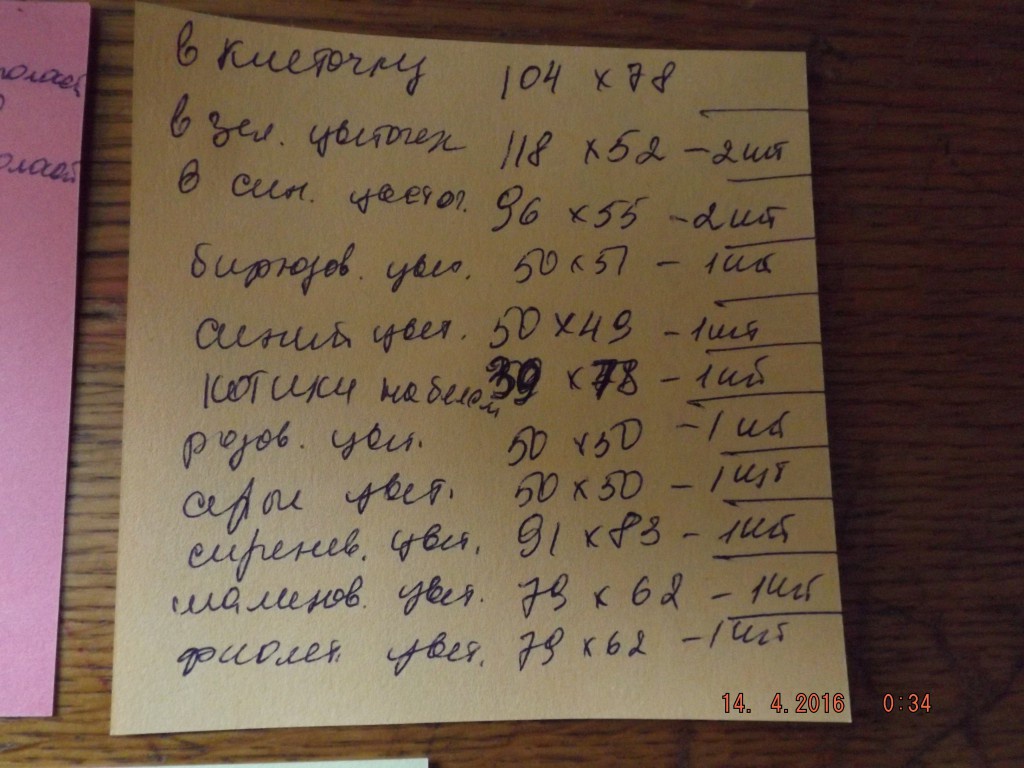 в клеточку 104 х 78
в зел. цветочек 118 х 52 – 2 шт
в син. цветоч. 96 х 55 – 2 шт
бирюзов. цве. 50 х 51 – 1 шт
синий цвет. 50 х 49 – 1 шт
котики на белом 39 х 78 – 1 шт
розов. цвет. 50 х 50 – 1 шт
серые цвет. 50 х 50 – 1 шт
сиренев. цвет. 91 х 83 – 1 шт
малинов. цвет. 79 х 62 – 1 шт
фиолет. цвет. 79 х 62 – 1 шт
14. 4.2016 0:34